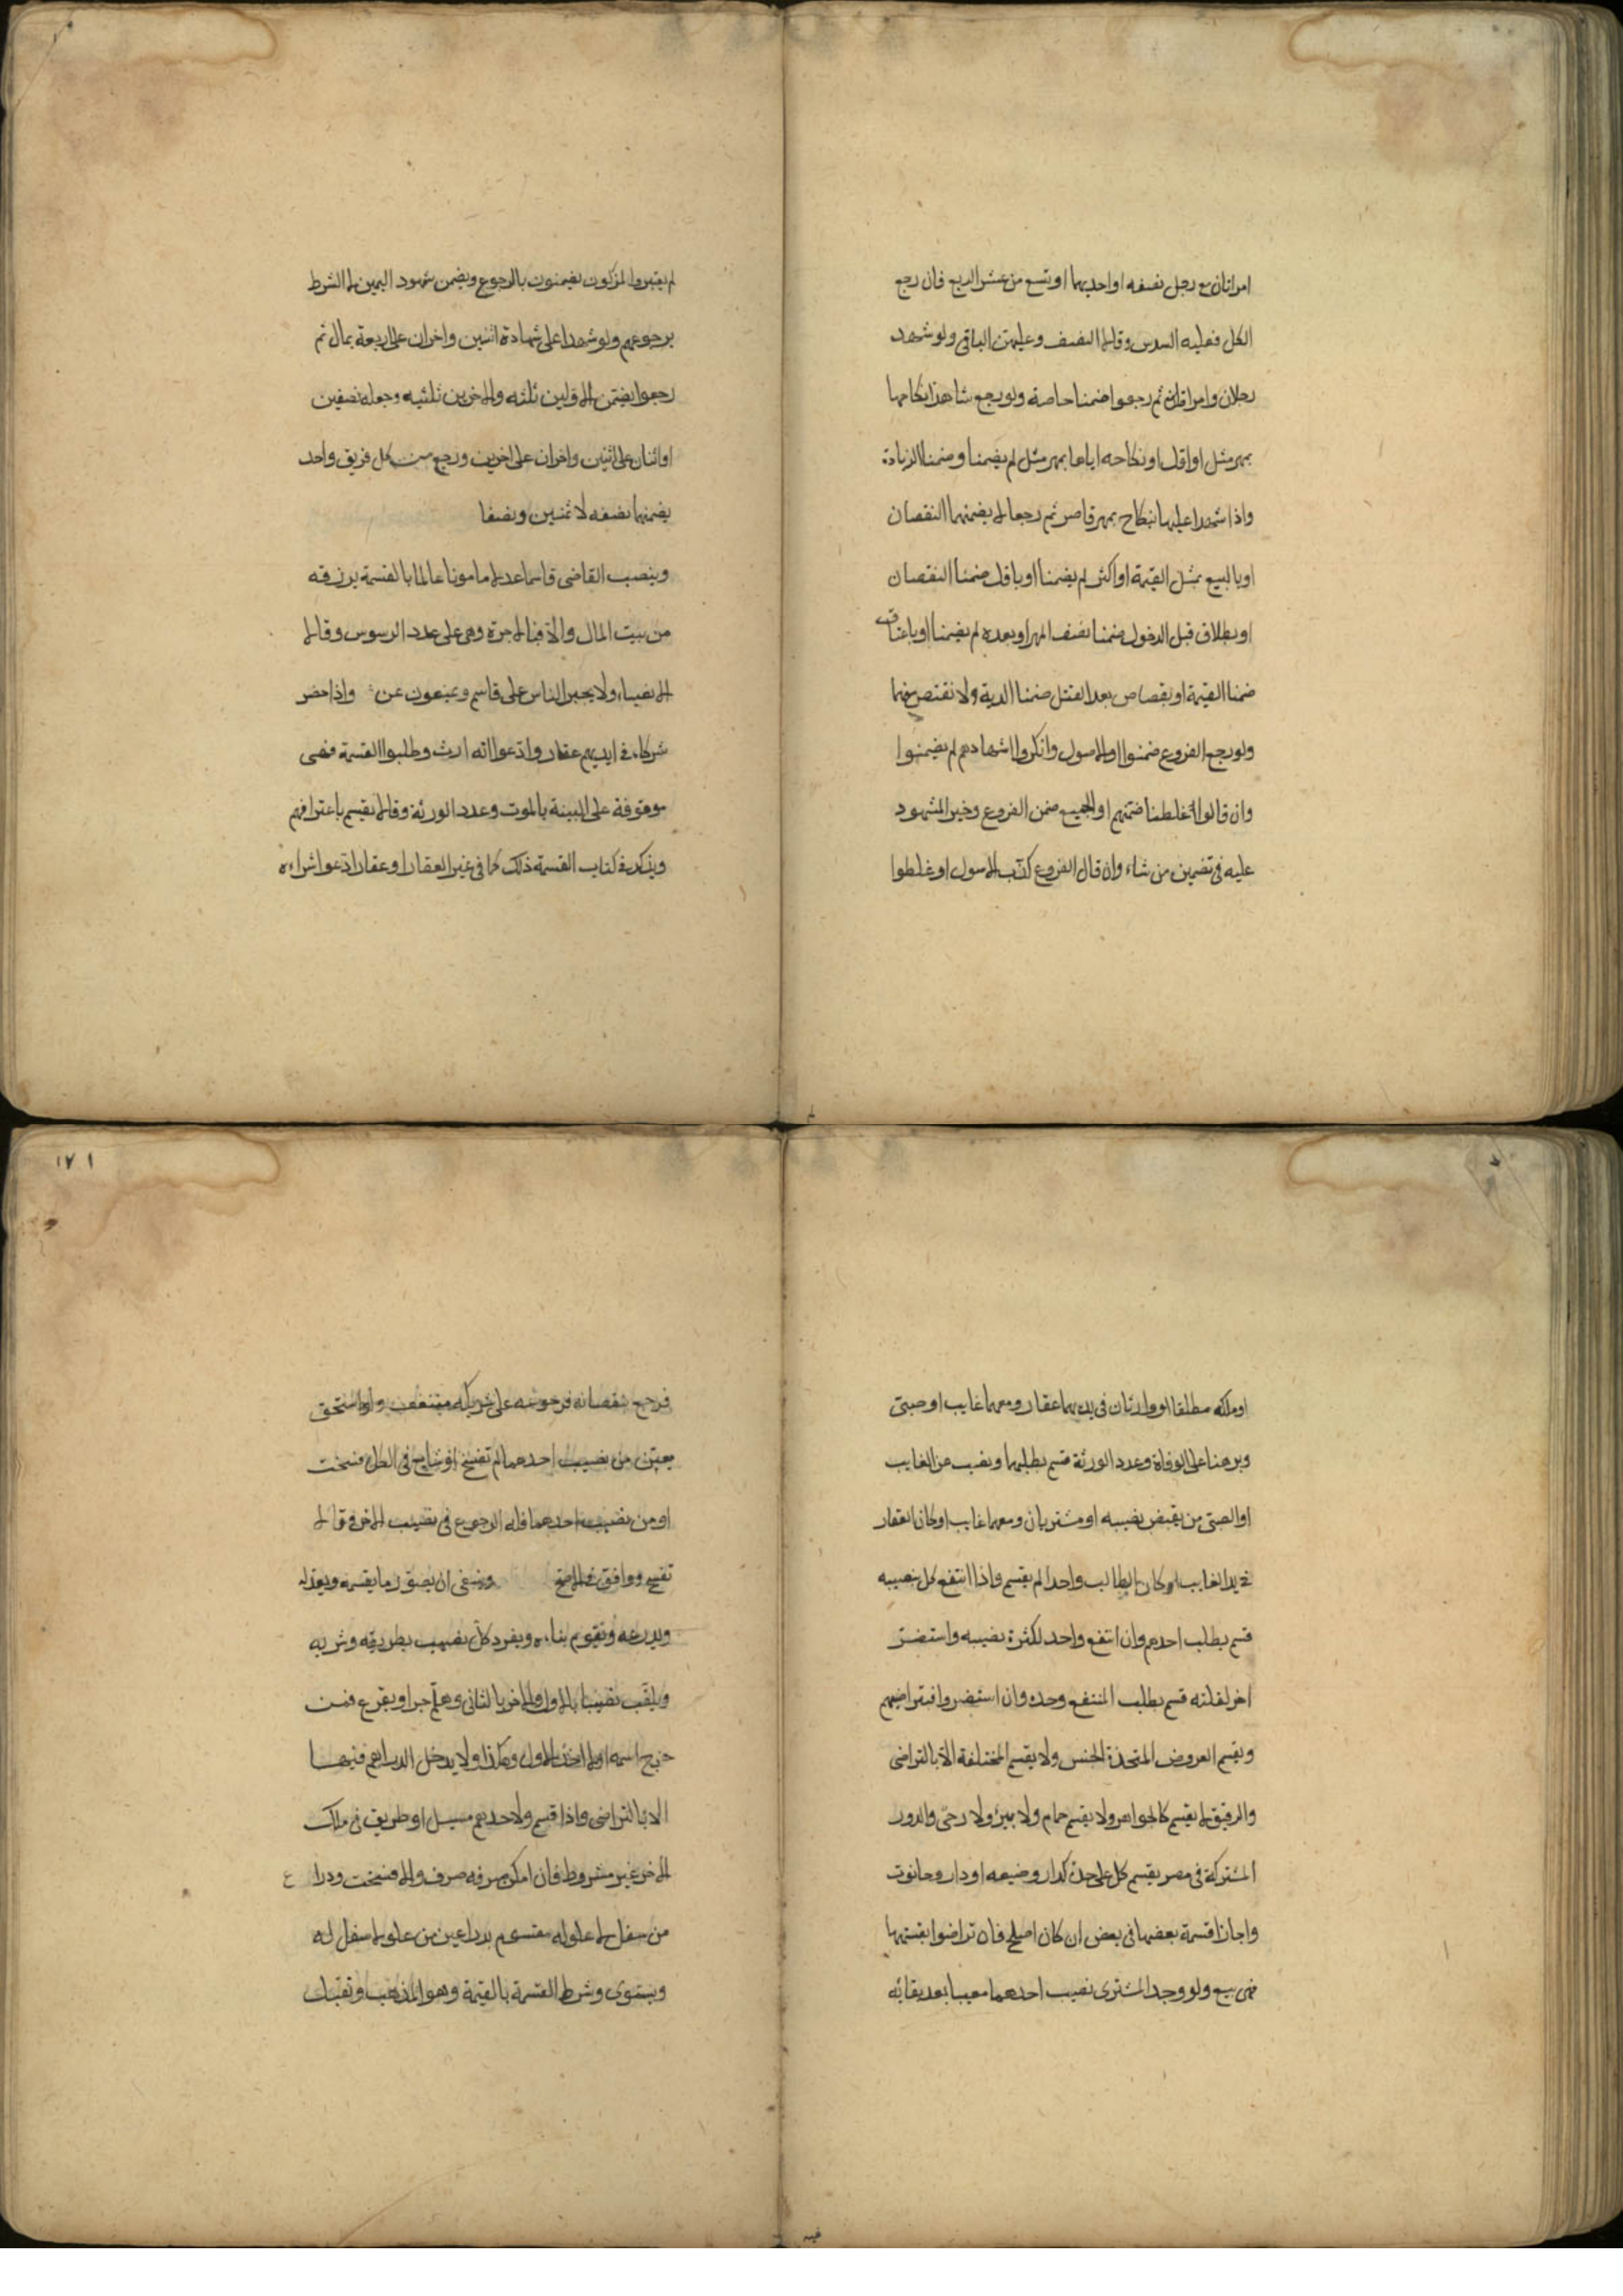 امراتان مع رجل نصفه او احديهما او تسع من عشر الربع فان رجع
الكل فعليه السدس وقالا النصف وعليهن الباقي ولو شهد
رجلان وامراة ثم رجعوا ضمنا خاصة ولو رجع شاهدا نكاحها
بمهر مثل او اقل او نكاحه اياها بمهر مثل لم يضمنا وضمنا الزيادة
واذا شهدا عليها بنكاح بمهر قاصر ثم رجعا لا يضمنهما النقصان
او بالبيع بمثل القيمة او اكثر لم يضمنا او باقل ضمنا النقصان
او بطلاق قبل الدخول ضمنا نصف المهر او بعده لم يضمنا او باعتاق
ضمنا القيمة او بقصاص بعد القتل ضمنا الدية ولا نقتص منهما
ولو رجع الفروع ضمنوا او الاصول وانكروا اشهادهم لم يضمنوا
وان قالوا غلطنا ضمنهم او الجميع ضمن الفروع وخير المشهود
عليه في تضمين من شاء وان قال الفروع كذب الاصول او غلطوا
لم يعتبر والمزكون يضمنون بالرجوع ويضمن شهود اليمين لا الشرط
برجوعهم ولو شهدا على شهادة اثنين واخران على اربعة بمال ثم
رجعوا يضمن الاولين ثلثه والاخرين ثلثيه وجعله نصفين
او اثنان على اثنين واخران على اخرين ورجع من كل فريق واحد
يضمنهما نصفه لا ثمنين ونصفا
وينصب القاضي قاسما عدلا مامونا عالما بالقسمة يرزقه
من بيت المال والا فبالاجرة وهي على عدد الرسوس وقالا
الانصباء ولا يجبر الناس على قاسم ويمنعون عن واذا حضر
شركاء في ايديهم عقار وادعوا انه ارث وطلبوا القسمة فهي
موقوفة على البينة بالموت وعدد الورثة وقالا يقسم باعترافهم
ويذكر في كتاب القسمة ذلك كما في غير العقار او عقار ادعوا شراءه
او ملكه مطلقا او وارثان في يدهما عقار ومعهما غايب او صبي
وبرهنا على الوفاة وعدد الورثة قسم بطلبهما ونصب عن الغايب
او الصبي من يقبض نصيبه او مشتريان ومعهما غايب او كان العقار
في يد الغايب او كان الطالب واحدا لم يقسم واذا انتفع كل بنصيبه
قسم بطلب احدهم وان انتفع واحد لكثرة نصيبه واستضر
اخر لقلته قسم بطلب المنتفع وحده وان استضروا فبتراضيهم
ويقسم العروض المتحدة الجنس ولا يقسم المختلفة الا بالتراضي
والرقيق لا يقسم كالجواهر ولا يقسم حمام ولا بير ولا رحى والدور
المشتركة في مصر يقسم كل على حدة كدار وضيعه او دار وحانوت
واجازا قسمة بعضها في بعض ان كان اصلح فان تراضوا بقسمتها
فهي بيع ولو وجد المشتري نصيب احدهما معيبا بعد بقائه
لم
١٧١
فرجع بنقصانه فرجوعه على شريكه منتف ولو استحق
معين من نصيب احدهما لم تفسخ او شايع في الكل فسخت
او من نصيب احدهما فله الرجوع في نصيب الاخر وقال لا
تفسخ ووافق في الاصح وينبغي ان يصور ما يقسمه ويعدله
ويذرعه ويقوم بناءه ويفرد كل نصيب بطريقه وشربه
ويلقب نصيبا بالاول والاخر بالثاني وهلم جرا ويقرع فمن
خرج اسمه اولا اخذ الاول وهكذا ولا يدخل الدراهم فيها
الا بالتراضي واذا قسم ولاحدهم مسيل او طريق في ملك
الاخر غير مشروط فان امكن صرفه صرف والا فسخت وذراع
من سفل لا علو له مقسوم بذراعين من علو لا سفل له
ويستوي وشرط القسمة بالقيمة وهو المذهب وتقبل
فيه